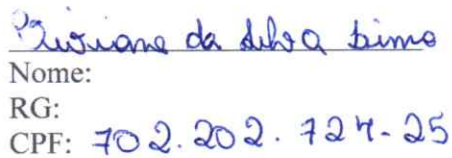 Viviane da Silva Lima
Nome:
RG:
CPF: 702.202.724-25